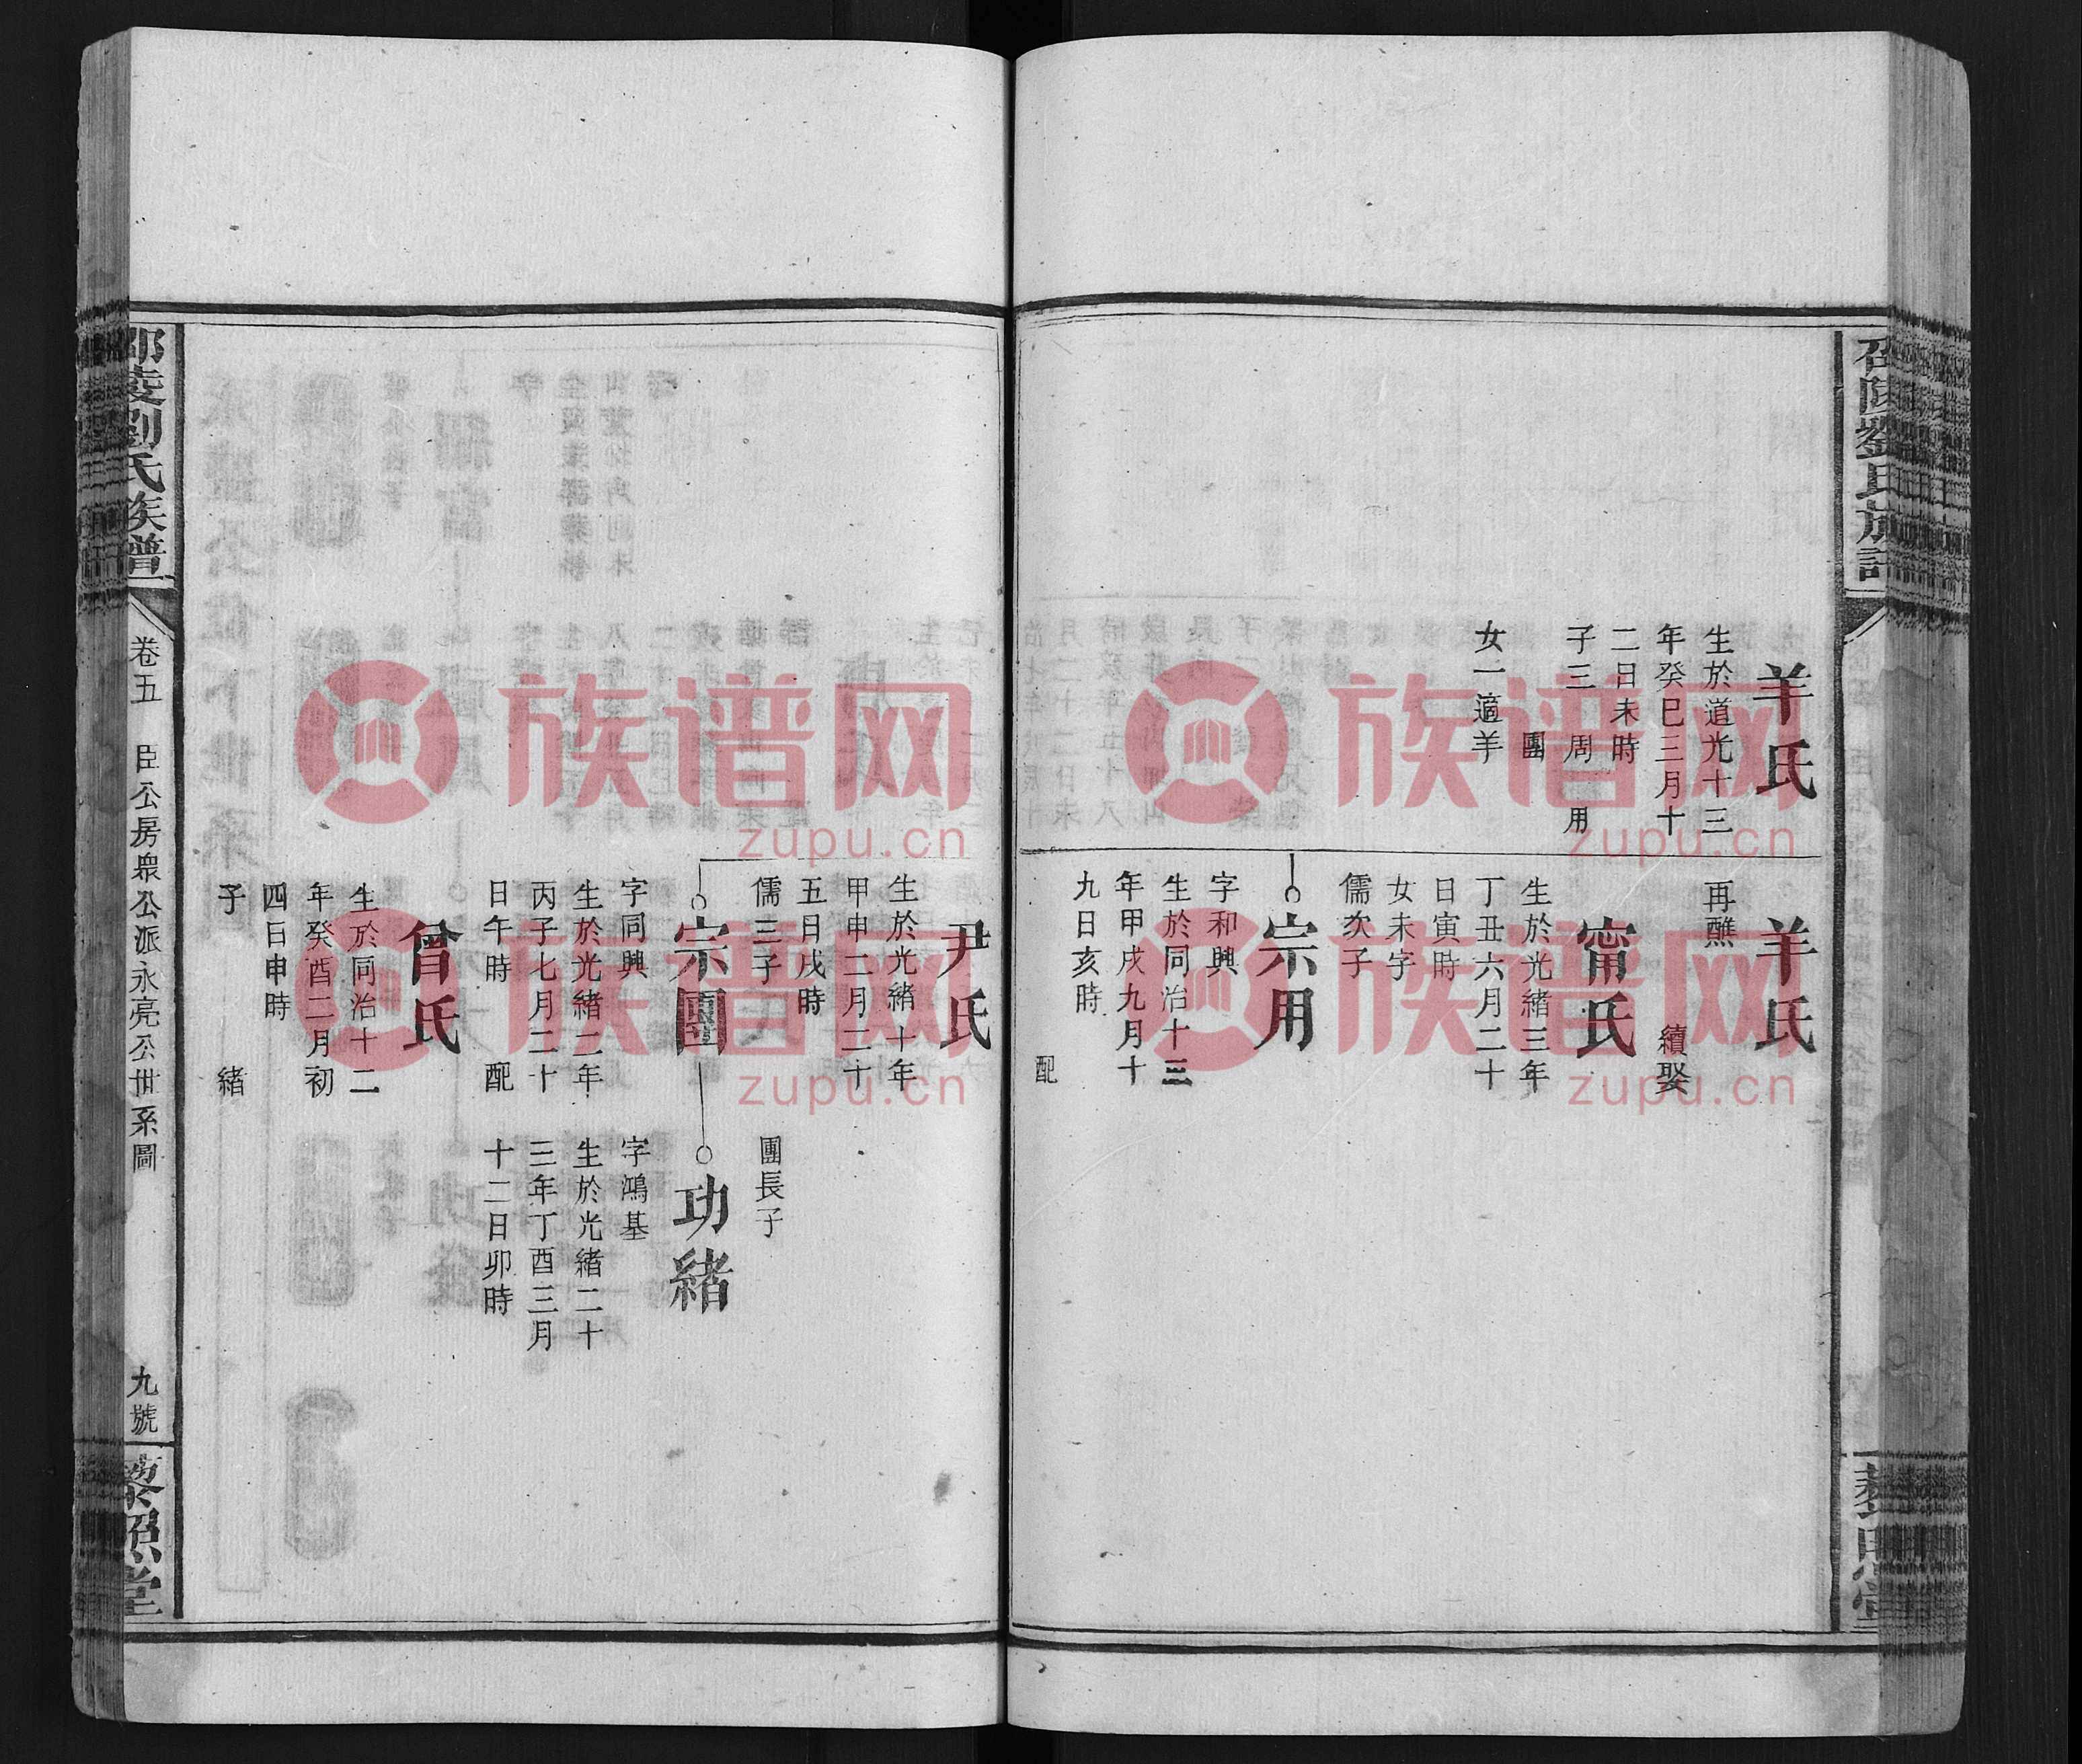 羊氏
生於道光十三
年癸巳三月十
二日未時
子三 周 用
團
女一適羊
羊氏
再醮
續娶
甯氏
生於光緒三年
丁丑六月二十
日寅時
女未字
儒次子
宗用
字和興
生於同治十三
年甲戌九月十
九日亥時
配
尹氏
生於光緒十年
甲申二月二十
五日戌時
儒三子
宗團
字同興
生於光緒二年
丙子七月二十
日午時 配
曾氏
生於同治十二
年癸酉二月初
四日申時
子 緒
團長子
功緒
字鴻基
生於光緒二十
三年丁酉三月
十二日卯時
邵陵劉氏族譜
卷五 臣公房眾公派永亮公世系圖
九號
黎照堂
族谱网
zupu.cn
族谱网
zupu.cn
族谱网
zupu.cn
族谱网
zupu.cn